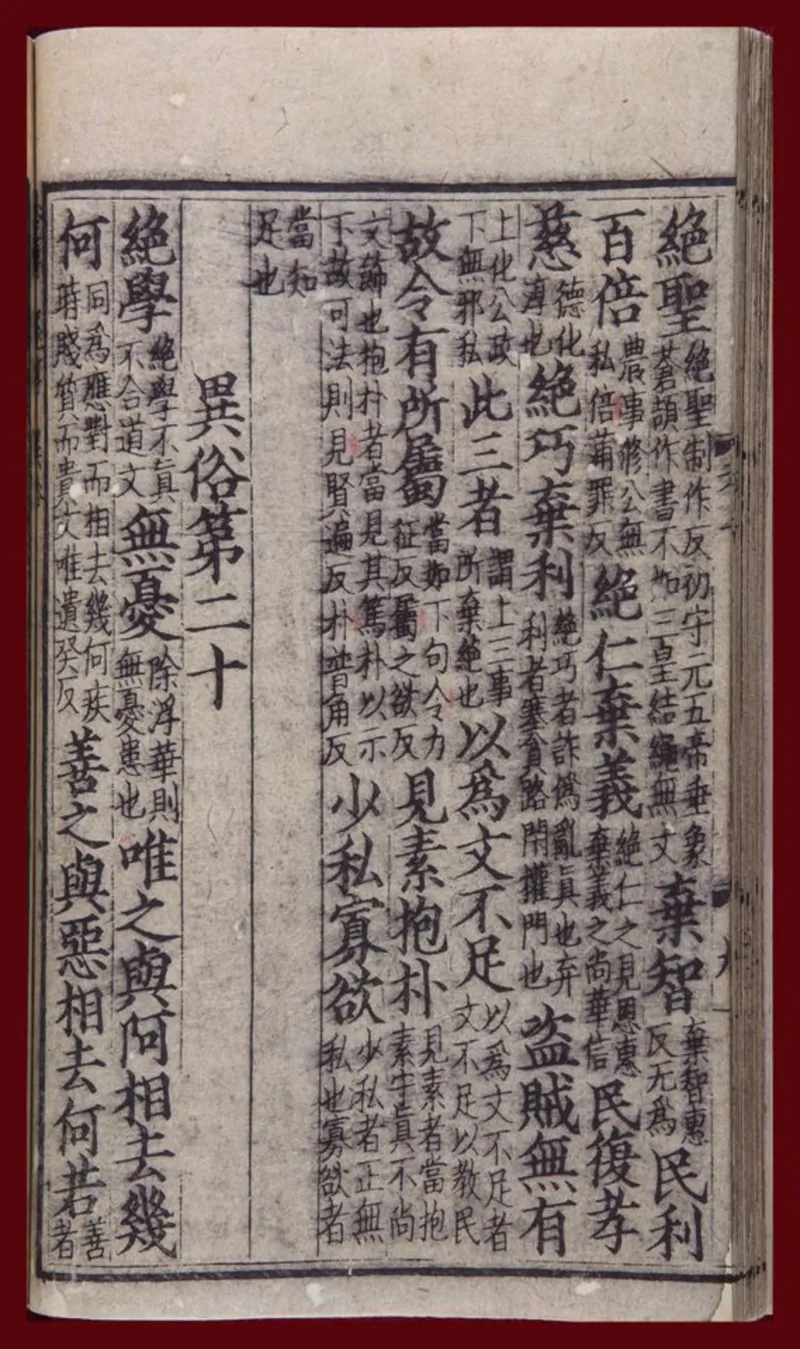 絕聖絕聖制作反初守元五帝垂象蒼頡作書不如三皇結繩無文棄智棄智惠反无爲民利
百倍農事修公無私倍蒲罪反絕仁棄義絕仁之見恩惠棄義之尚華信民復孝
慈德化淳也絕巧棄利絕巧者詐僞亂真也弃利者塞貪路閉權門也盜賊無有
上化公政下無邪私此三者謂上三事所棄絕也以爲文不足以爲文不足者文不足以教民
故令有所屬當如下句令力征反屬之欲反見素抱朴見素者當抱素守真不尚
文飾也抱朴者當見其篤朴以示下故可法則見賢遍反朴普角反少私寡欲少私者正無私也寡欲者
當知足也
異俗第二十
絕學絕學不真不合道文無憂除浮華則無憂患也唯之與阿相去幾
何同爲應對而相去幾何疾時賤質而貴文唯遺癸反善之與惡相去何若善者